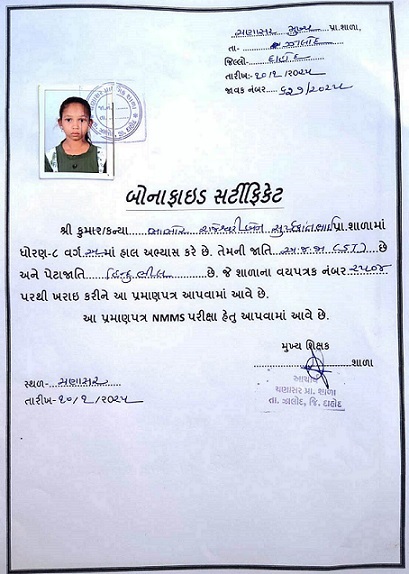 ચણાસર મુખ્ય પ્રા.શાળા,
તા- ઝાલોદ
જિલ્લો- દાહોદ
તારીખ:- ૨૦/૧/૨૦૨૫
જાવક નંબર ૬૨૭/૨૦૨૫
બોનાફાઇડ સર્ટીફિકેટ
શ્રી કુમાર/કન્યા ભાભોર રાજેશ્વરીબેન સુર્યકાંતભાઈ પ્રા.શાળામાં
ધોરણ-૮ વર્ગ માં હાલ અભ્યાસ કરે છે. તેમની જાતિ અ.જ.જા (ST) છે
અને પેટાજાતિ હિન્દુ ભીલ છે. જે શાળાના વયપત્રક નંબર ૨૫૦૪
પરથી ખરાઇ કરીને આ પ્રમાણપત્ર આપવામાં આવે છે.
આ પ્રમાણપત્ર NMMS પરીક્ષા હેતુ આપવામાં આવે છે.
મુખ્ય શિક્ષક
શાળા
આચાર્ય
ચણાસર પ્રા. શાળા
તા. ઝાલોદ, જિ. દાહોદ
સ્થળ- ચણાસર
તારીખ-૨૦/૧/૨૦૨૫